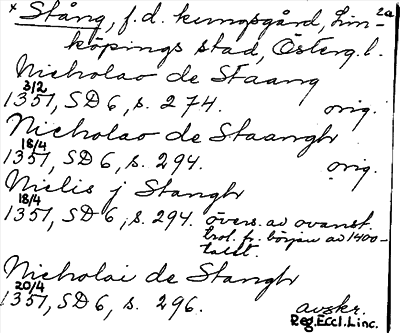 × Stång, f.d. kungsgård, Lin- 2a
köpings stad, Österg. l.
Nicholao de Staang
3/2
1351, SD 6, s. 274. orig.
Nicholao de Staangh
18/4
1351, SD 6, s. 294. orig.
Nielis j Stangh
18/4
1351, SD 6, s. 294. övers. av ovanst.
trol. fr. början av 1400-
talet.
Nicholai de Stangh
20/4
1351, SD 6, s. 296. avskr.
Reg. Eccl. Linc.